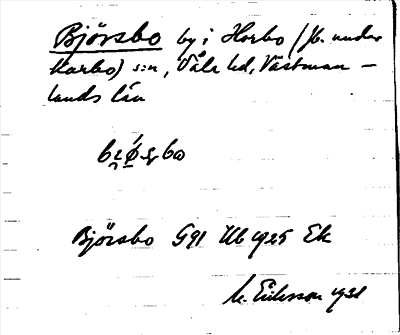 Björsbo by i Horbo (Jb. under
Harbo) s:n, Våla hd, Västman-
lands län
Björsbo G91 Ub 1925 Ek
M. Eriksson 1931